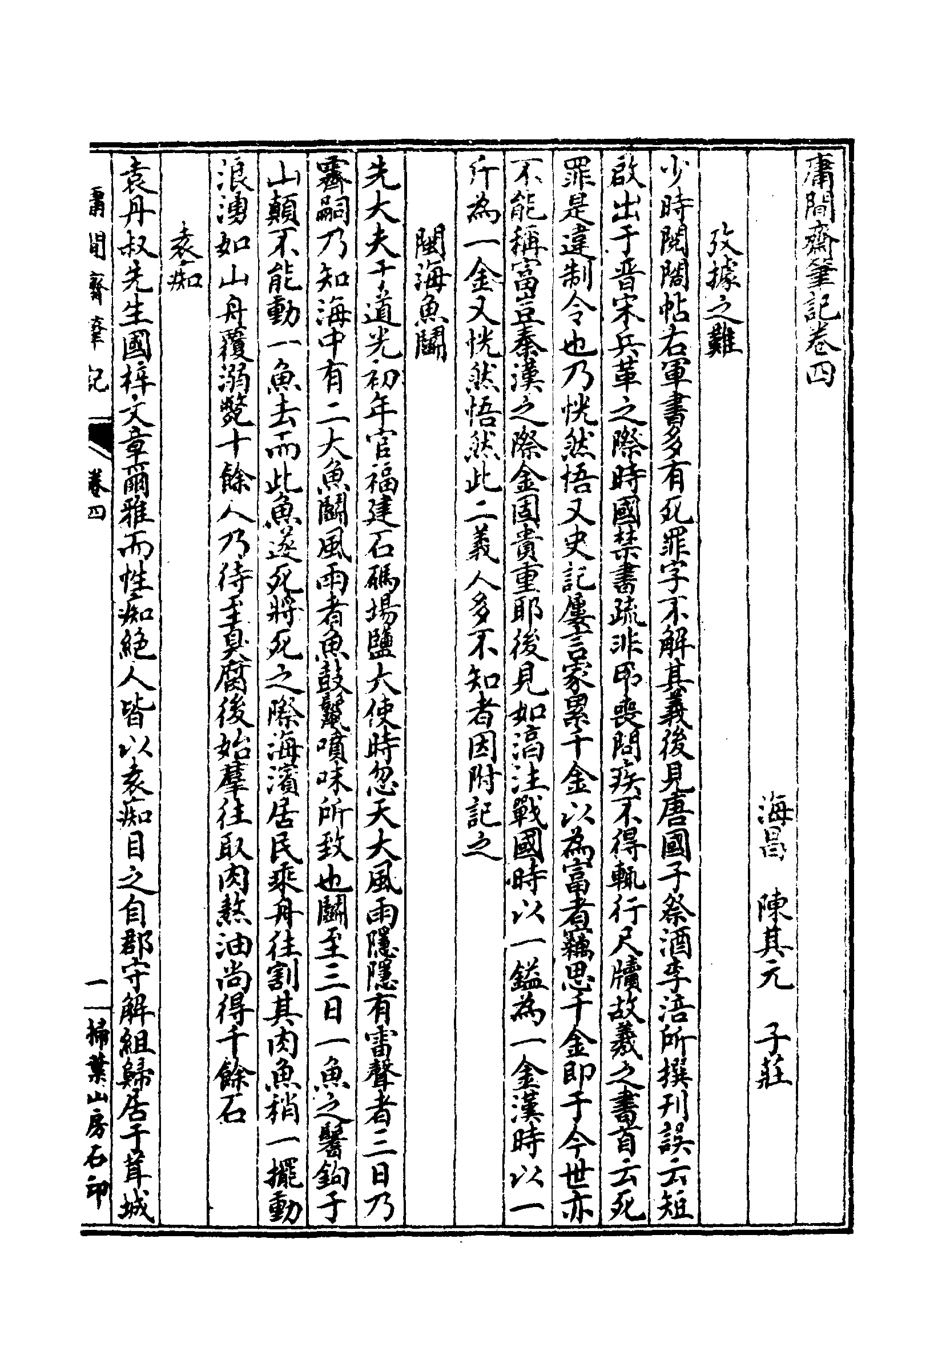 庸閒齋筆記卷四
海昌　陳其元　子莊
攷據之難
少時閱閣帖右軍書多有死罪字不解其義後見唐國子祭酒李涪所撰刊誤云短
啟出于晋宋兵革之際時國禁書疏非弔喪問疾不得輒行尺牘故羲之書首云死
罪是違制令也乃恍然悟又史記屢言家累千金以為富者竊思千金即于今世亦
不能稱富豈秦漢之際金固貴重耶後見如淳注戰國時以一鎰為一金漢時以一
斤為一金又恍然悟然此二義人多不知者因附記之
閩海魚鬬
先大夫于道光初年官福建石碼場鹽大使時忽天大風雨隱隱有雷聲者三日乃
霽嗣乃知海中有二大魚鬬風雨者魚鼓鬣噴沫所致也鬬至三日一魚之鬐鉤于
山顛不能動一魚去而此魚遂死將死之際海濱居民乘舟往割其肉魚稍一擺動
浪湧如山舟覆溺斃十餘人乃待至臭腐後始羣往取肉熬油尚得千餘石
袁痴
袁丹叔先生國梓文章爾雅而性痴絕人皆以袁痴目之自郡守解組歸居于茸城
庸閒齋筆記　卷四　一　掃葉山房石印